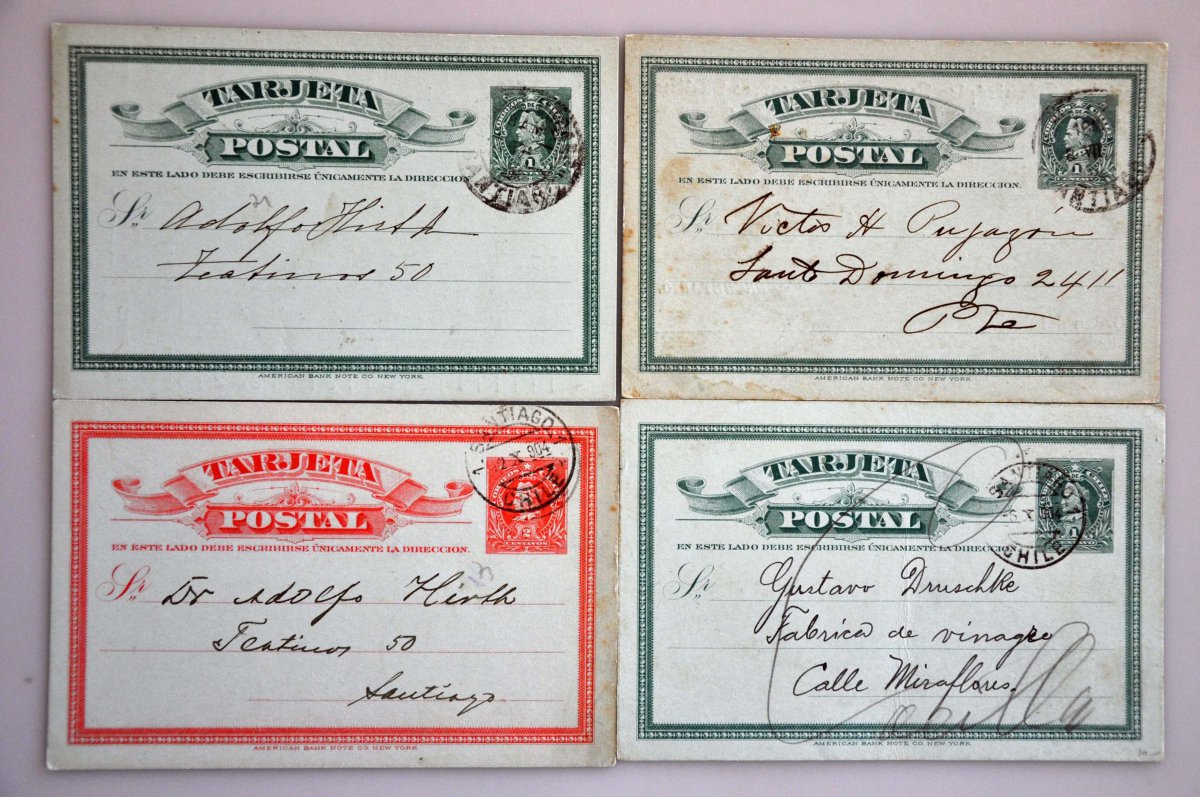 TARJETA
POSTAL
EN ESTE LADO DEBE ESCRIBIRSE ÚNICAMENTE LA DIRECCION.
1
Sr. Adolfo Hirth
Teatinos 50
AMERICAN BANK NOTE CO. NEW YORK.
TARJETA
POSTAL
EN ESTE LADO DEBE ESCRIBIRSE ÚNICAMENTE LA DIRECCION.
1
Sr. Victor H Pujazón
Santo Domingo 2411
Pte
AMERICAN BANK NOTE CO. NEW YORK.
TARJETA
POSTAL
SANTIAGO 1
2 X 904
CHILE
2
CENTAVOS
EN ESTE LADO DEBE ESCRIBIRSE ÚNICAMENTE LA DIRECCION.
13
Sr. Dr Adolfo Hirth
Teatinos 50
Santiago
AMERICAN BANK NOTE CO. NEW YORK
TARJETA
POSTAL
CHILE
1
EN ESTE LADO DEBE ESCRIBIRSE ÚNICAMENTE LA DIRECCION
Sr. Gustavo Druschke
Fabrica de vinagre
Calle Miraflores.
AMERICAN BANK NOTE CO. NEW YORK